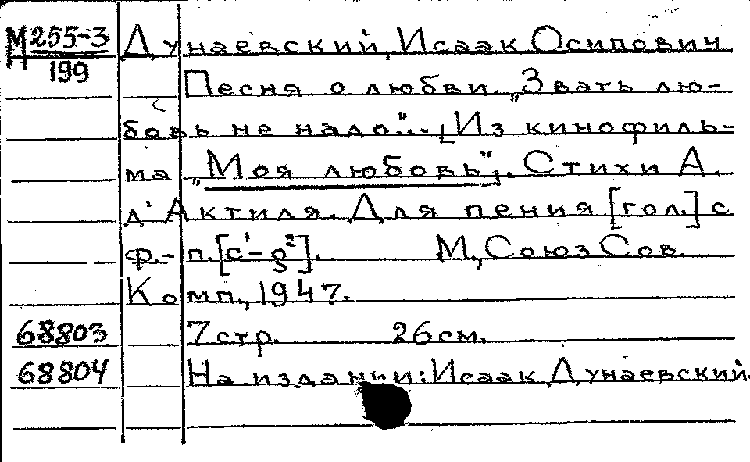 М 255-3
199
Дунаевский, Исаак Осипович
Песня о любви „Звать лю-
бовь не надо"... [Из кинофиль-
ма „Моя любовь"]. Стихи А.
д'Актиля. Для пения [гол.] с
ф.-п. [c¹-g²]. М., Союз Сов.
Комп., 1947.
68803 7 стр. 26 см.
68804 На издании: Исаак Дунаевский.